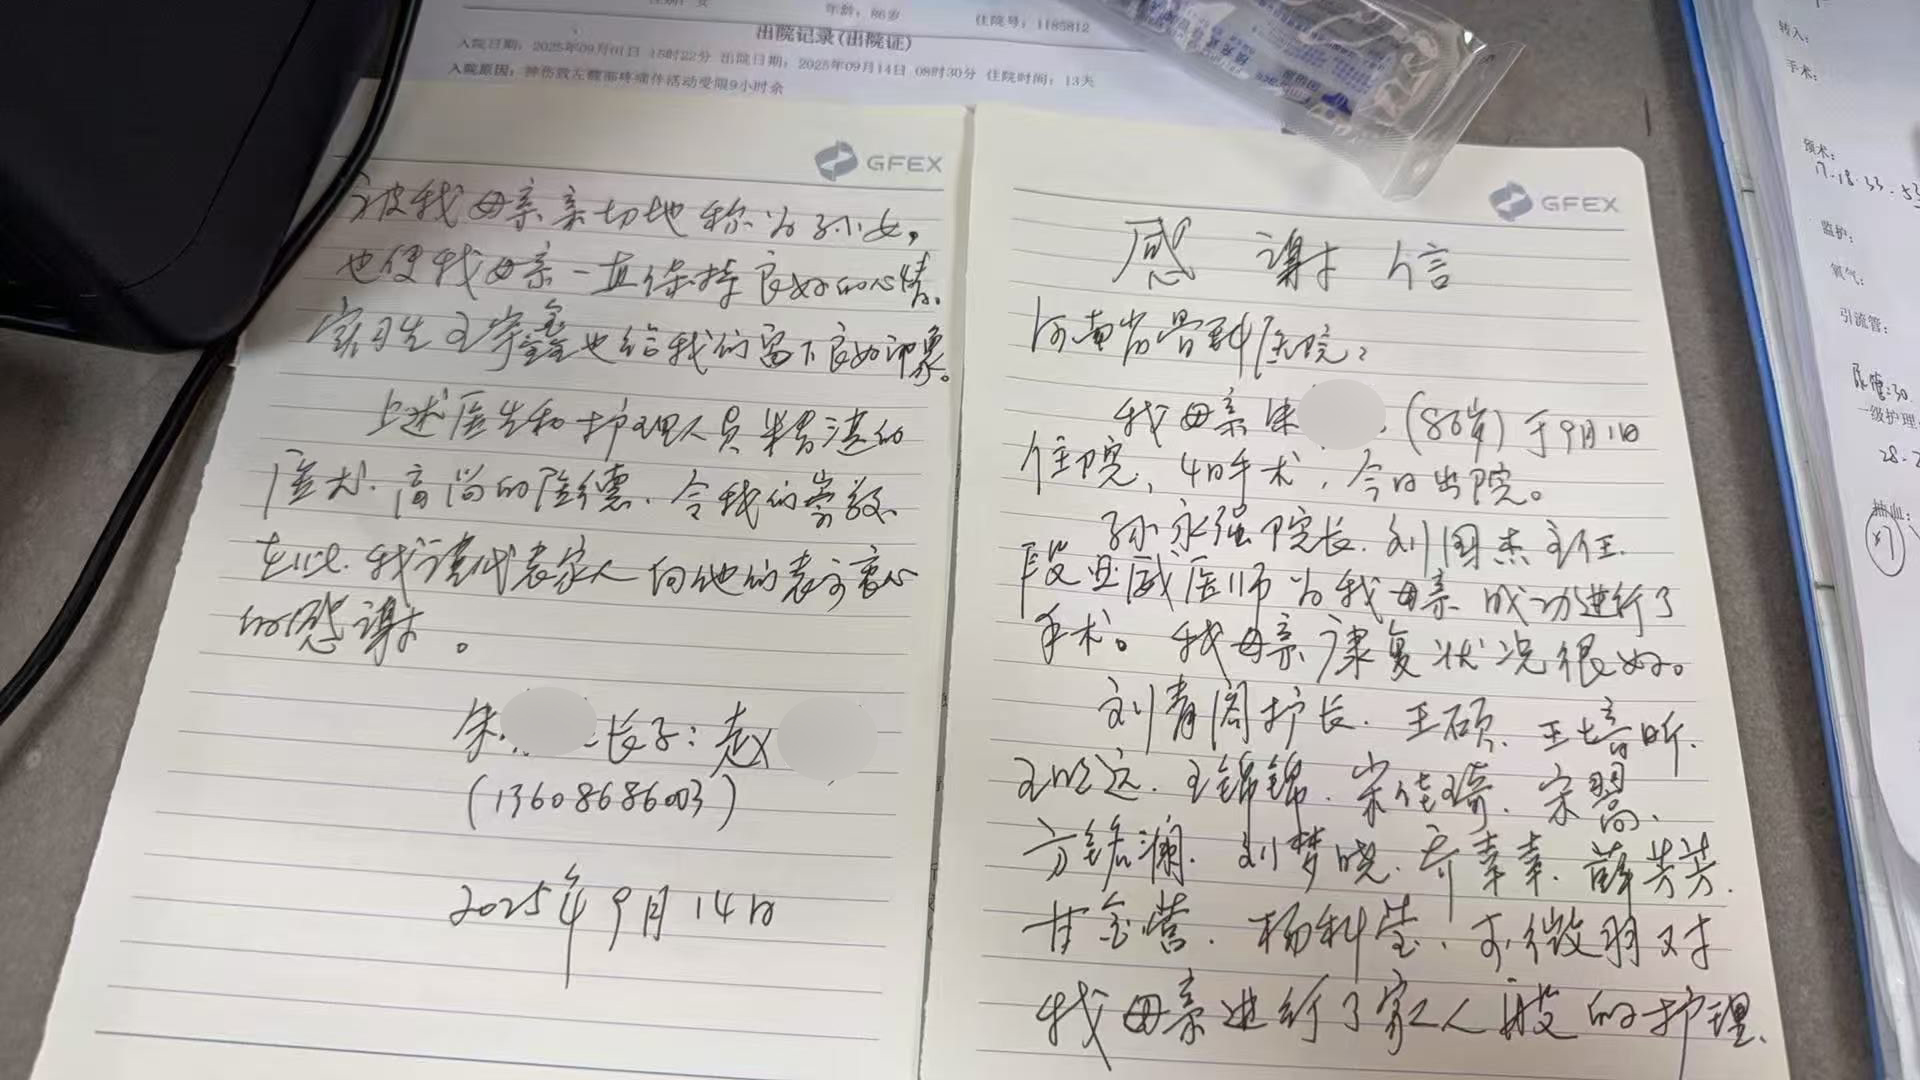 年龄：86岁 住院号：1185812
出院记录(出院证)
入院日期：2025年09月01日 15时22分 出院日期：2025年09月14日 08时30分 住院时间：13天
入院原因：摔伤致左髋部疼痛伴活动受限9小时余
GFEX
感谢信
河南省骨科医院：
我母亲朱（86岁）于9月1日
住院，4日手术，今日出院。
孙永强院长、刘国杰主任、
段亚威医师为我母亲成功进行了
手术。我母亲康复状况很好。
刘青阁护长、王硕、王培昕、
王锦锦、宋佳琦、宋
方铭澜、刘梦晓、乔幸幸、薛芳芳、
甘金营、杨科莹、微羽对
我母亲进行了家人般的护理、
GFEX
被我母亲亲切地称为孙女，
也使我母亲一直保持良好的心情。
实习生王宇鑫也给我们留下良好印象。
上述医生和护理人员精湛的
医术、高尚的医德、令我们崇敬。
在此，我谨代表家人向他们表示衷心
的感谢。
朱 长子：赵
(13608686003)
2025年9月14日
转入：
手术：
预术：
17-18·33-53
监护：
氧气：
引流管：
尿管:30
一级护理
抽血：